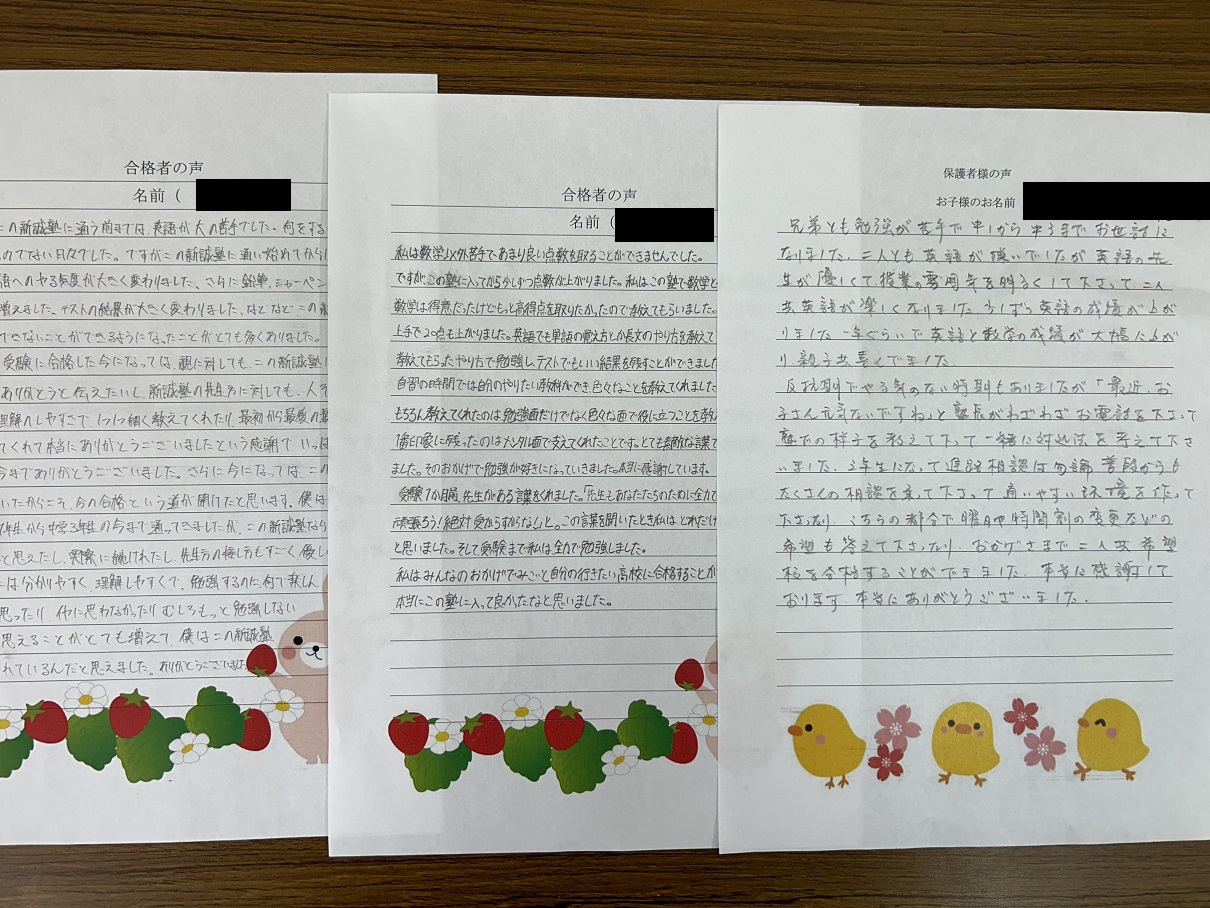 合格者の声
名前（
この新誠塾に通う前までは、英語が大の苦手でした。何をする
のでない日々でした。ですがこの新誠塾に通い始めてから
語へのやる気度が大きく変わりました。さらに鉛筆、シャーペン
増えました。テストの結果が大きく変わりました。などなどこの新
できないことができるようになったことがとても多くありました。
受験に合格した今になっては、親に対しても、この新誠塾に
ありがとうと伝えたいし、新誠塾の先生方に対しても、人
理解のしやすさで1つ1つ細く教えてくれたり、最初から最後の最
てくれて本当にありがとうございましたという感謝でいっぱ
今までありがとうございました。さらに今になっては、この
いたからこそ、今の合格という道が開けたと思います。僕は
年生から中学3年生の今まで通ってきましたが、この新誠塾なら
と思えたし、実際に続けれたし、先生方の接し方もすごく優し
は分かりやすく、理解しやすくて、勉強するのに何で楽しん
思ったり、仇に思わなかったりむしろもっと勉強しない
思えることがとても増えて、僕はこの新誠塾
れているんだと思えました。ありがとうございました
合格者の声
名前（
私は数学以外苦手であまり良い点数を取ることができませんでした。
ですが、この塾に入ってから少しずつ点数が上がりました。私はこの塾で数学と
数学は得意だったけどもっと高得点を取りたかったので教えてもらいました。
上手で20点も上がりました。英語でも単語の覚え方とか長文のやり方を教えて
教えてもらったやり方で勉強し、テストでもいい結果を残すことができました
自習の時間では自分のやりたい教科ができ、色々なことを教えてくれました
もちろん教えてくれたのは勉強面だけでなく色々な面で役に立つことを教え
1番印象に残ったのはメンタル面で支えてくれたことです。とても素敵な言葉で
ました。そのおかげで勉強が好きになっていきました。本当に感謝しています。
受験1か月前、先生がある言葉をくれました。「先生もあなたたちのために全力で
頑張ろう！絶対受からすからな！」と。この言葉を聞いたとき私はどれだけ
と思いました。そして受験まで私は全力で勉強しました。
私はみんなのおかげでみごと自分の行きたい高校に合格することが
本当にこの塾に入って良かったなと思いました。
保護者様の声
お子様のお名前
兄弟とも勉強が苦手で中1から中3までお世話に
なりました。二人とも英語が嫌いでしたが英語の先
生が優しくて、授業の雰囲気を明るくして下さって二人
共英語が楽しくなりました。少しずつ英語の成績が上が
りました。一年ぐらいで英語と数学の成績が大幅に上が
り、親子共喜んでました。
反抗期でやる気のない時期もありましたが「最近、お
子さん元気ないですね」と塾長がわざわざお電話を下さって
塾での様子を教えて下って一緒に対処法を考えて下さ
いました。3年生になって進路相談は勿論普段からも
たくさんの相談を乗って下さって通いやすい環境を作って
下さったり、こちらの都合で曜日や時間割の変更などの
希望も答えて下さったり、おかげさまで二人共希望
校を合格することができました。本当に感謝して
おります。本当にありがとうございました。